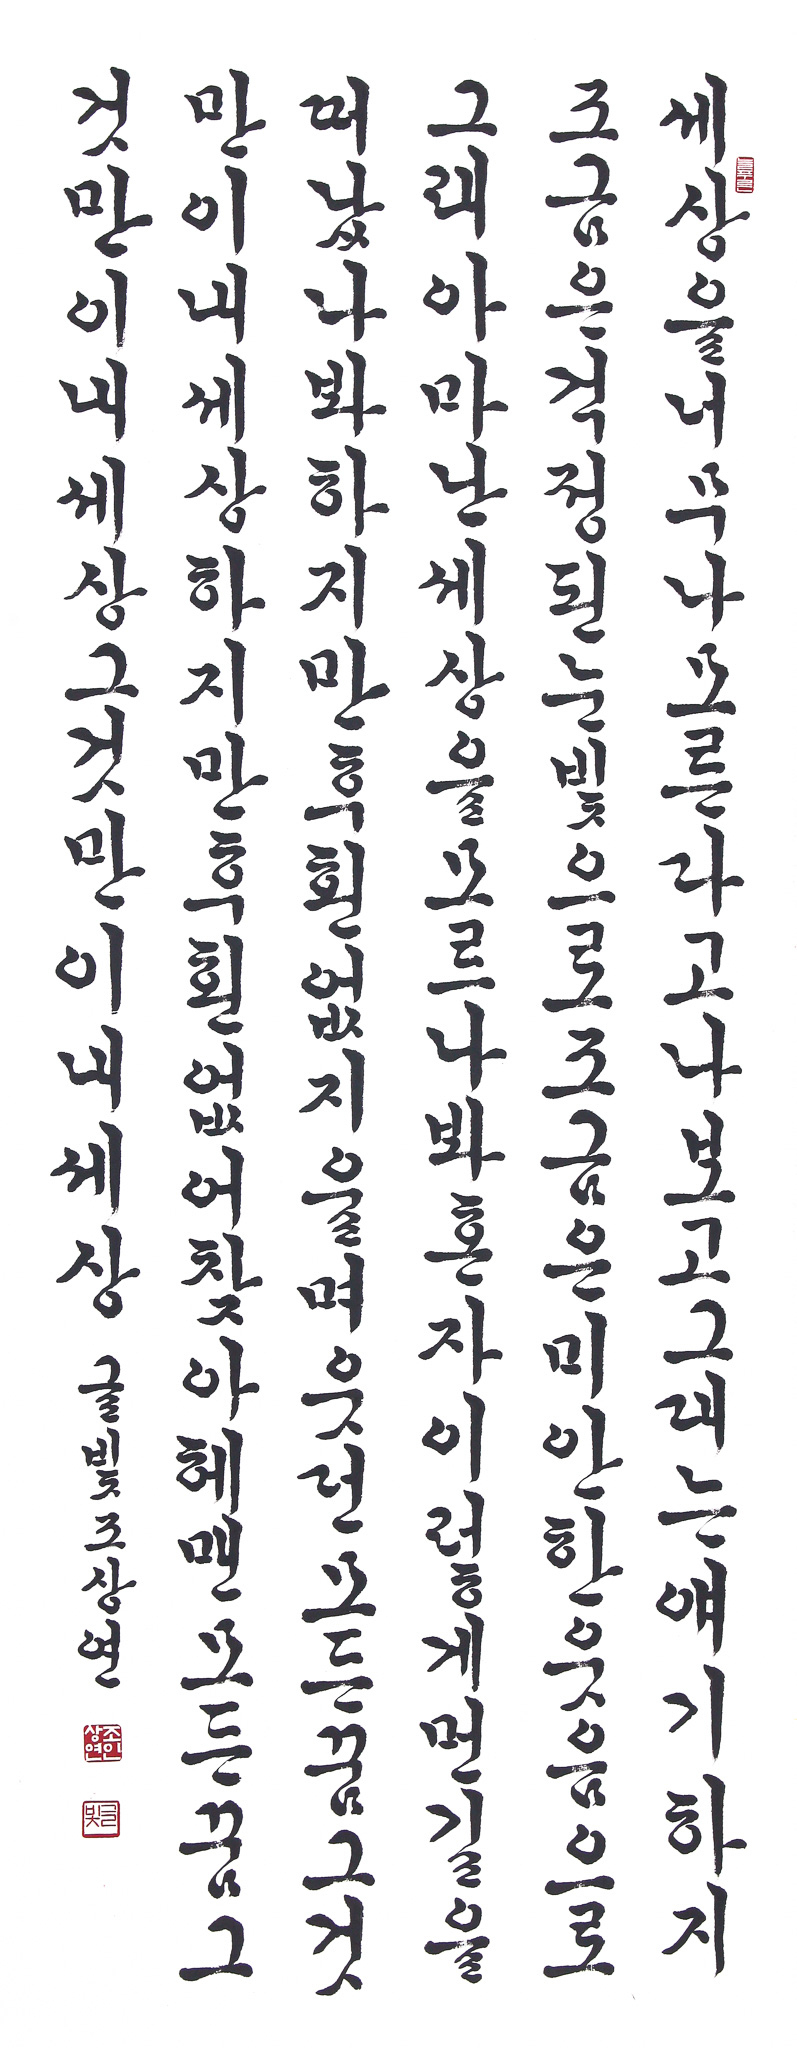 세상을너무나모른다고나보고그대는얘기하지
조금은걱정된눈빛으로조금은미안한웃음으로
그래아마난세상을모르나봐혼자이렇게먼길을
떠났나봐하지만후회없지울며웃던모든꿈그것
만이내세상하지만후회없어찾아헤맨모든꿈그
것만이내세상그것만이내세상 글빛조상연
조인상연